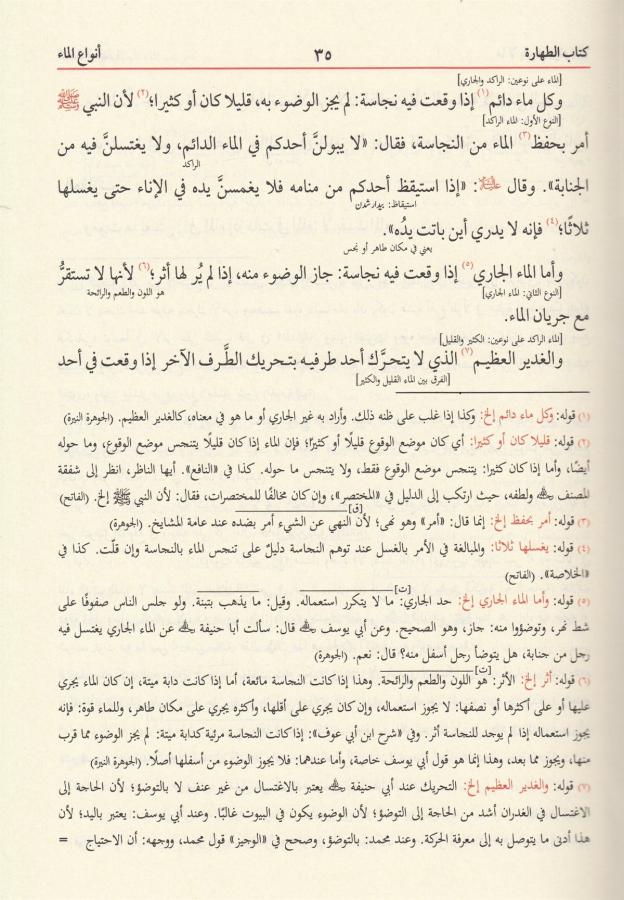 كتاب الطهارة ٣٥ أنواع الماء
[الماء على نوعين: الراكد والجاري]
وكل ماء دائم(١) إذا وقعت فيه نجاسة: لم يجز الوضوء به، قليلا كان أو كثيرا؛(٢) لأن النبي ﷺ
[النوع الأول: الماء الراكد]
أمر بحفظ(٣) الماء من النجاسة، فقال: «لا يبولنَّ أحدكم في الماء الدائم، ولا يغتسلنَّ فيه من
الراكد
الجنابة». وقال ﷺ: «إذا استيقظ أحدكم من منامه فلا يغمسنَّ يده في الإناء حتى يغسلها
استيقاظ: بيدار شدن
ثلاثًا؛(٤) فإنه لا يدري أين باتت يدُه».
يعني في مكان طاهر أو نجس
وأما الماء الجاري(٥) إذا وقعت فيه نجاسة: جاز الوضوء منه، إذا لم يُر لها أثر؛(٦) لأنها لا تستقرُّ
[النوع الثاني: الماء الجاري] هو اللون والطعم والرائحة
مع جريان الماء.
[الماء الراكد على نوعين: الكثير والقليل]
والغدير العظيم(٧) الذي لا يتحرَّك أحد طرفيه بتحريك الطَّرف الآخر إذا وقعت في أحد
[الفرق بين الماء القليل والكثير]
(١) قوله: وكل ماء دائم إلخ: وكذا إذا غلب على ظنه ذلك. وأراد به غير الجاري أو ما هو في معناه، كالغدير العظيم. (الجوهرة النيرة)
(٢) قوله: قليلا كان أو كثيرا: أي كان موضع الوقوع قليلًا أو كثيرًا؛ فإن الماء إذا كان قليلًا يتنجس موضع الوقوع، وما حوله
أيضًا، وأما إذا كان كثيرا: يتنجس موضع الوقوع فقط، ولا يتنجس ما حوله. كذا في «النافع». أيها الناظر، انظر إلى شفقة
المصنف ﷫ ولطفه، حيث ارتكب إلى الدليل في «المختصر»، وإن كان مخالفًا للمختصرات، فقال: لأن النبي ﷺ إلخ. (الفاتح)
[ق]
(٣) قوله: أمر بحفظ إلخ: إنما قال: «أمر» وهو نهى؛ لأن النهي عن الشيء أمر بضده عند عامة المشايخ. (الجوهرة)
(٤) قوله: يغسلها ثلاثا: والمبالغة في الأمر بالغسل عند توهم النجاسة دليلٌ على تنجس الماء بالنجاسة وإن قلّت. كذا في
«الخلاصة». (الفاتح)
[ت]
(٥) قوله: وأما الماء الجاري إلخ: حد الجاري: ما لا يتكرر استعماله. وقيل: ما يذهب بتبنة. ولو جلس الناس صفوفًا على
شط نهر، وتوضؤوا منه: جاز، وهو الصحيح. وعن أبي يوسف ﷫ قال: سألت أبا حنيفة ﷫ عن الماء الجاري يغتسل فيه
رجل من جنابة، هل يتوضأ رجل أسفل منه؟ قال: نعم. (الجوهرة)
[ت]
(٦) قوله: أثر إلخ: الأثر: هو اللون والطعم والرائحة. وهذا إذا كانت النجاسة مائعة، أما إذا كانت دابة ميتة، إن كان الماء يجري
عليها أو على أكثرها أو نصفها: لا يجوز استعماله، وإن كان يجري على أقلها، وأكثره يجري على مكان طاهر، وللماء قوة: فإنه
يجوز استعماله إذا لم يوجد للنجاسة أثر. وفي «شرح ابن أبي عوف»: إذا كانت النجاسة مرئية كدابة ميتة: لم يجز الوضوء مما قرب
منها، ويجوز مما بعد، وهذا إنما هو قول أبي يوسف خاصة، وأما عندهما: فلا يجوز الوضوء من أسفلها أصلًا. (الجوهرة النيرة)
(٧) قوله: والغدير العظيم إلخ: التحريك عند أبي حنيفة ﷫ يعتبر بالاغتسال من غير عنف لا بالتوضؤ؛ لأن الحاجة إلى
الاغتسال في الغدران أشد من الحاجة إلى التوضؤ؛ لأن الوضوء يكون في البيوت غالبًا. وعند أبي يوسف: يعتبر باليد؛ لأن
هذا أدنى ما يتوصل به إلى معرفة الحركة. وعند محمد: بالتوضؤ، وصحح في «الوجيز» قول محمد، ووجهه: أن الاحتياج =